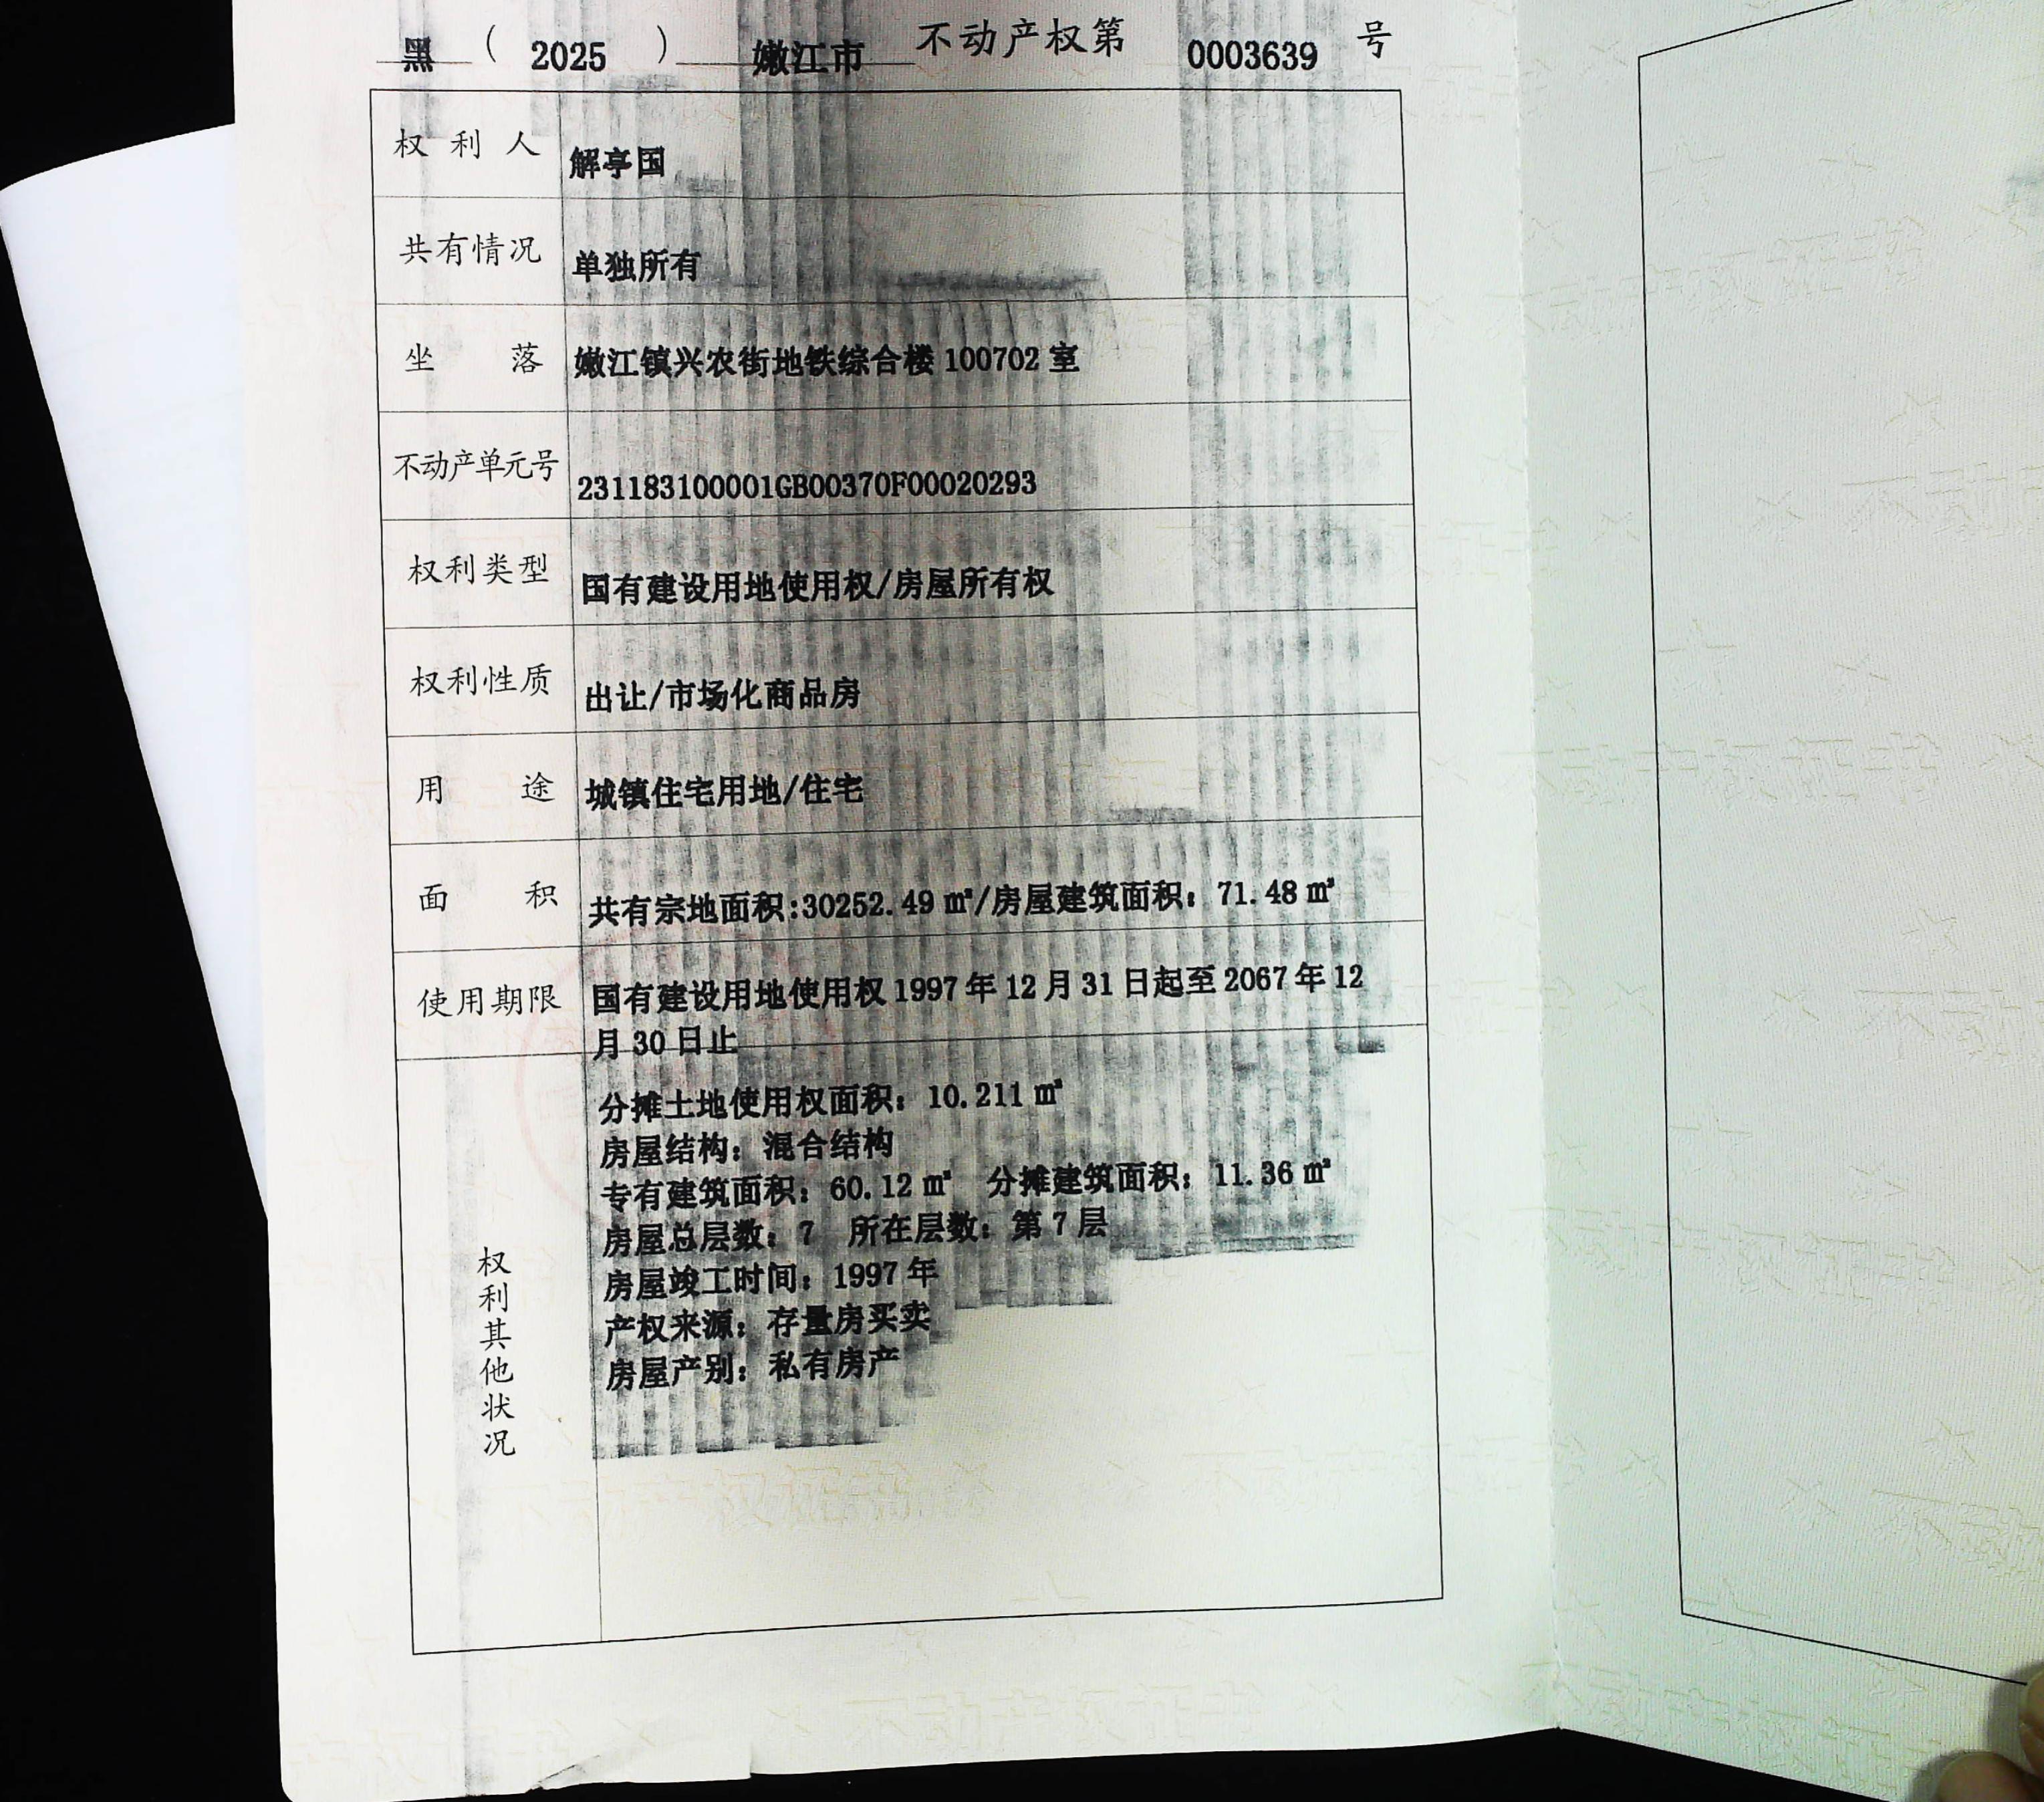 黑 ( 2025 ) 嫩江市 不动产权第 0003639 号
权利人 解亭国
共有情况 单独所有
坐落 嫩江镇兴农街地铁综合楼 100702 室
不动产单元号 231183100001GB00370F00020293
权利类型 国有建设用地使用权/房屋所有权
权利性质 出让/市场化商品房
用途 城镇住宅用地/住宅
面积 共有宗地面积:30252.49 ㎡/房屋建筑面积：71.48 ㎡
使用期限 国有建设用地使用权 1997 年 12 月 31 日起至 2067 年 12
月 30 日止
权利其他状况
分摊土地使用权面积：10.211 ㎡
房屋结构：混合结构
专有建筑面积：60.12 ㎡ 分摊建筑面积：11.36 ㎡
房屋总层数：7 所在层数：第 7 层
房屋竣工时间：1997 年
产权来源：存量房买卖
房屋产别：私有房产